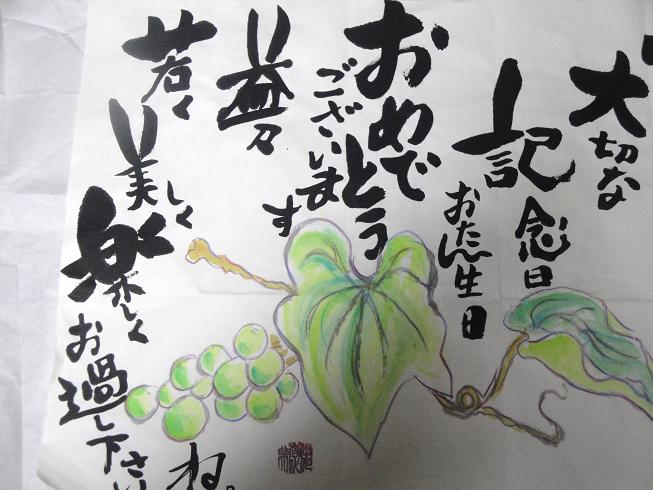 大切な
記念日
おたん生日
おめでとう
ございます
益々
若く
美しく
楽しく
お過し下さい
ね。